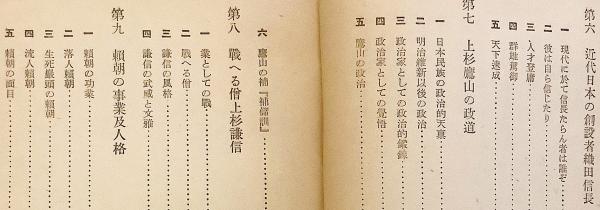 第六 近代日本の創設者織田信長
一 現代に於て信長たらん者は誰ぞ
二 彼は自ら信じたり
三 人才登庸
四 群雄駕御
五 天下速成
第七 上杉鷹山の政道
一 日本民族の政治的天稟
二 明治維新以後の政治
三 政治家としての政治的鍛錬
四 政治家としての覺悟
五 鷹山の政治
六 鷹山の補『補儲訓』
第八 戰へる僧上杉謙信
一 業としての戰
二 戰へる僧
三 謙信の風格
四 謙信の武威と文雅
第九 賴朝の事業及人格
一 賴朝の功業
二 落人賴朝
三 生死嚴頭の賴朝
四 流人賴朝
五 賴朝の面目